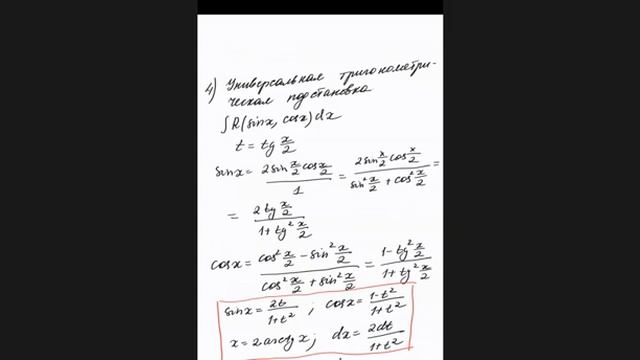 4) Универсальная тригонометри-
ческая подстановка
∫R(sinx, cosx)dx
t = tg x/2
sinx = (2sin x/2 cos x/2)/1 = (2sin x/2 cos x/2)/(sin² x/2 + cos² x/2) =
= (2tg x/2)/(1+tg² x/2)
cosx = (cos² x/2 − sin² x/2)/(cos² x/2 + sin² x/2) = (1−tg² x/2)/(1+tg² x/2)
sinx = 2t/(1+t²) ; cosx = (1−t²)/(1+t²)
x = 2arctg x; dx = 2dt/(1+t²)